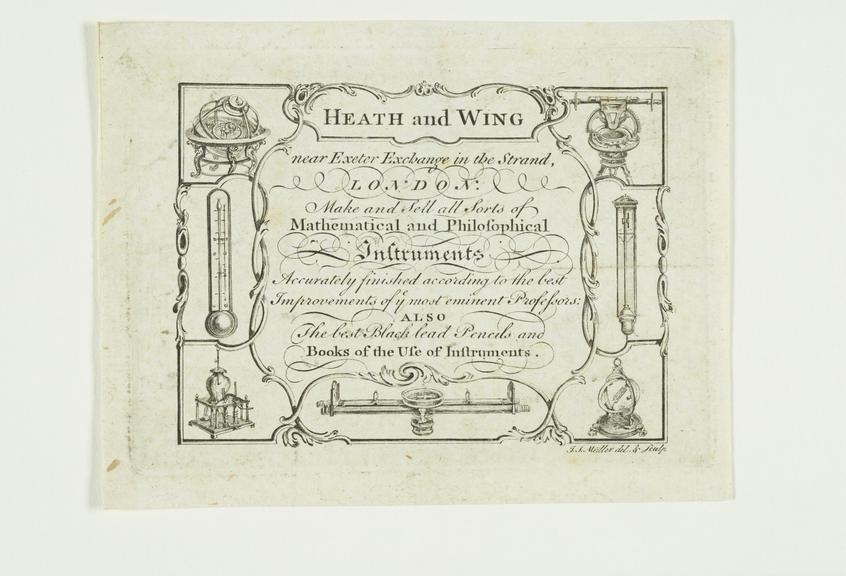 HEATH and WING
near Exeter Exchange in the Strand,
LONDON:
Make and Sell all Sorts of
Mathematical and Philoſophical
Inſtruments
Accurately finished according to the best
Improvements of yͤ most eminent Profeſsors:
ALSO
The best Black lead Pencils and
Books of the Uſe of Inſtruments.
J. S. Müller del. & Sculp.